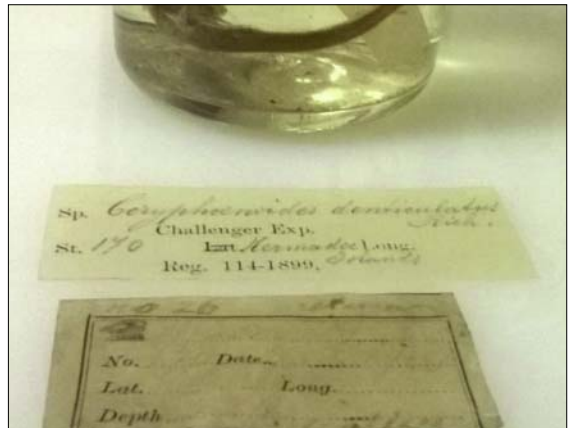 Sp. Coryphoenoides denticulatus
Rich.
Challenger Exp.
St. 170 Lat. Kermadec Long.
Reg. 114-1899,
No. Date
Lat. Long.
Depth